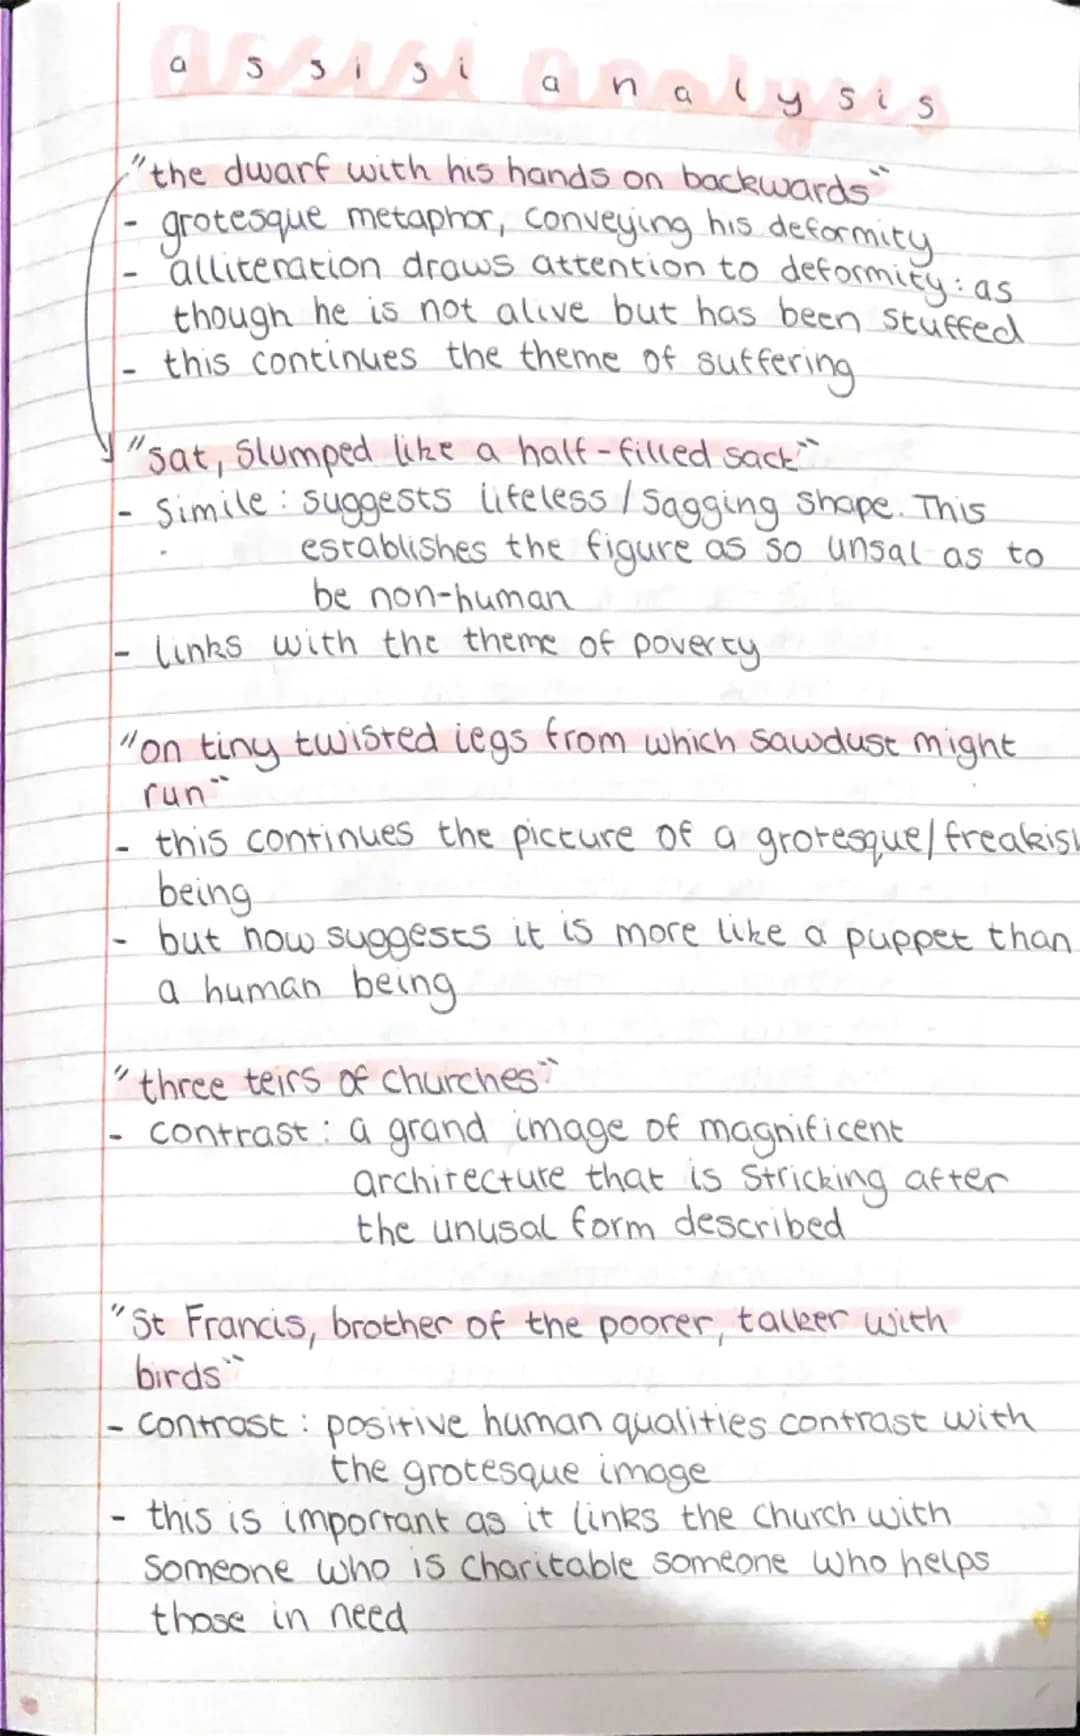 assisi analysis
"the dwarf with his hands on backwards"
- grotesque metaphor, conveying his deformity
- alliteration draws attention to deformity: as
though he is not alive but has been stuffed
- this continues the theme of suffering
"sat, slumped like a half-filled sack"
- Simile: suggests lifeless / sagging shape. This
establishes the figure as so unsal as to
be non-human
- links with the theme of poverty
"on tiny twisted legs from which sawdust might
run"
- this continues the picture of a grotesque/freakish
being
- but now suggests it is more like a puppet than
a human being
"three teirs of churches"
- contrast: a grand image of magnificent
architecture that is stricking after
the unusal form described
"St Francis, brother of the poorer, talker with
birds"
- contrast: positive human qualities contrast with
the grotesque image
- this is important as it links the church with
someone who is charitable someone who helps
those in need